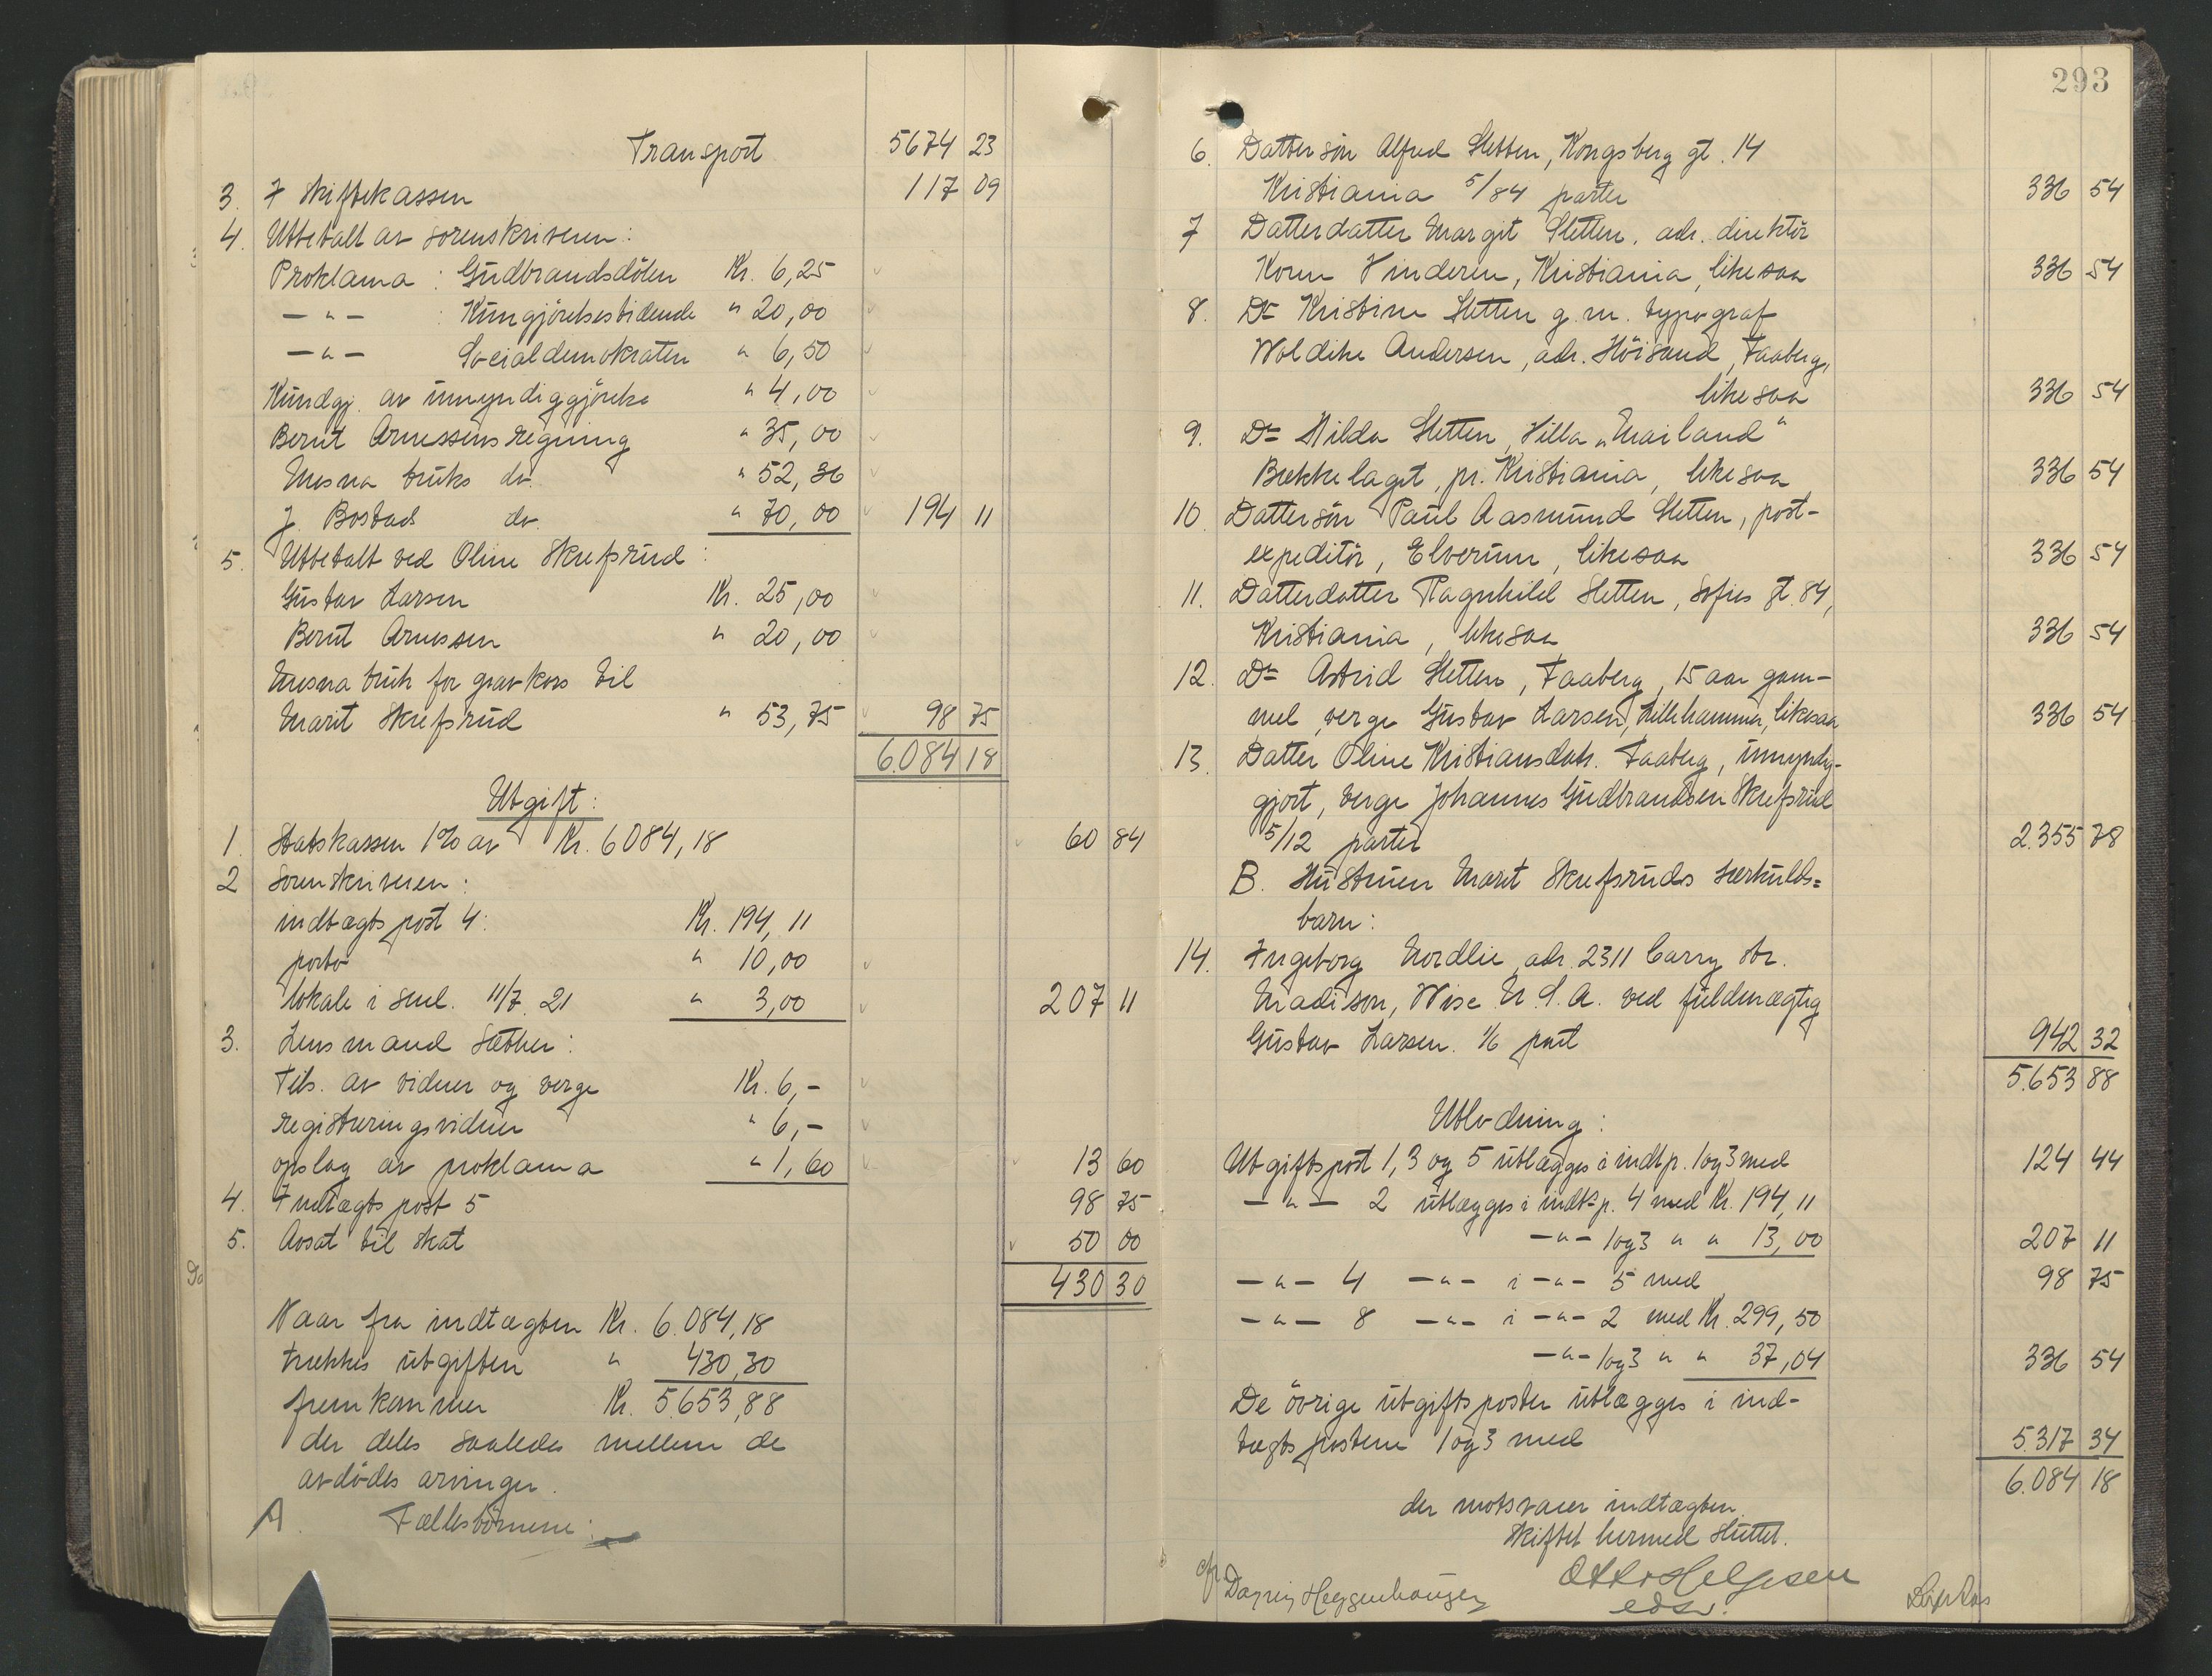 Transport 5674 23
3. I skiftekassen 117 09
4. Utbetalt av sorenskriveren:
Proklama: Gudbrandsdølen Kr. 6,25
—"— : Kungjørelsestidende " 20,00
—"— Socialdemokraten " 6,50
Kundgj. av umyndiggjørelse " 4,00
Bernt Arnessens regning " 35,00
Mesna bruks do. " 52,36
J. Bostad do. " 70,00 194 11
5. Utbetalt ved Oline Skrefsrud:
Gustav Larsen Kr. 25,00
Bernt Arnessen " 20,00
Mesna bruk for gravkors til
Marit Skrefsrud " 53,75 98 75
6.084 18
Utgift:
1. Statskassen 1% av Kr. 6084,18 60 84
2 Sorenskriveren:
indtægtspost 4: Kr. 194,11
porto " 10,00
lokale i saml. 11/7 21 " 3,00 207 11
3. Lensmand Sæther:
Tils. av vidner og verge Kr. 6,-
registreringsvidner " 6,-
opslag av proklama " 1,60 13 60
4. Indtægtspost 5 98 75
5. Avsat til skat 50 00
430 30
Naar fra indtægten Kr. 6.084,18
trækkes utgiften " 430,30
fremkommer Kr. 5.653,88
der deles saaledes mellem de
avdødes arvinger.
A. Fællesbørnene:
293
6. Dattersøn Alfred Sletten, Kongsberg gt. 14
Kristiania 5/84 parter 336 54
7 Datterdatter Margit Sletten, adr. direktør
Koren Vinderen, Kristiania, likesaa 336 54
8. Do Kristine Sletten g. m. typograf
Woldike Andersen, adr. Høisand, Faaberg,
likesaa 336 54
9. Do Hilda Sletten, Villa „Mailand"
Bækkelaget, pr. Kristiania, likesaa 336 54
10. Dattersøn Paul Aasmund Sletten, post-
expeditør, Elverum, likesaa 336 54
11. Datterdatter Ragnhild Sletten, Sofies gt. 84,
Kristiania, likesaa 336 54
12. Do Astrid Sletten, Faaberg, 15 aar gam-
mel, verge Gustav Larsen, Lillehammer, likesaa 336 54
13. Datter Oline Kristiansdatr. Faaberg, umyndig-
gjort, verge Johannes Gudbrandsen Skrefsrud
5/12 parter 2.355 78
B. Hustruen Marit Skrefsruds særkulds=
barn:
14. Ingeborg Nordlie, adr. 2311 Carry Str.
Madison, Wisc. U.S.A. ved fuldmægtig
Gustav Larsen. 1/6 part 942 32
5.653 88
Utlodning:
Utgiftspost 1, 3 og 5 utlægges i indt.p. 1 og 3 med 124 44
—"— 2 utlægges i indt.p. 4 med Kr. 194,11
—"— 1 og 3 " " 13,00 207 11
—"— 4 —"— i —"— 5 med 98 75
—"— 8 —"— i —"— 2 med Kr. 299,50
—"— 1 og 3 " " 37,04 336 54
De øvrige utgiftsposter utlægges i ind-
tægtspostene 1 og 3 med 5.317 34
6.084 18
der motsvarer indtægten.
Skiftet hermed sluttet.
Otto Helgesen
edsv.
Dagny Heggenhougen